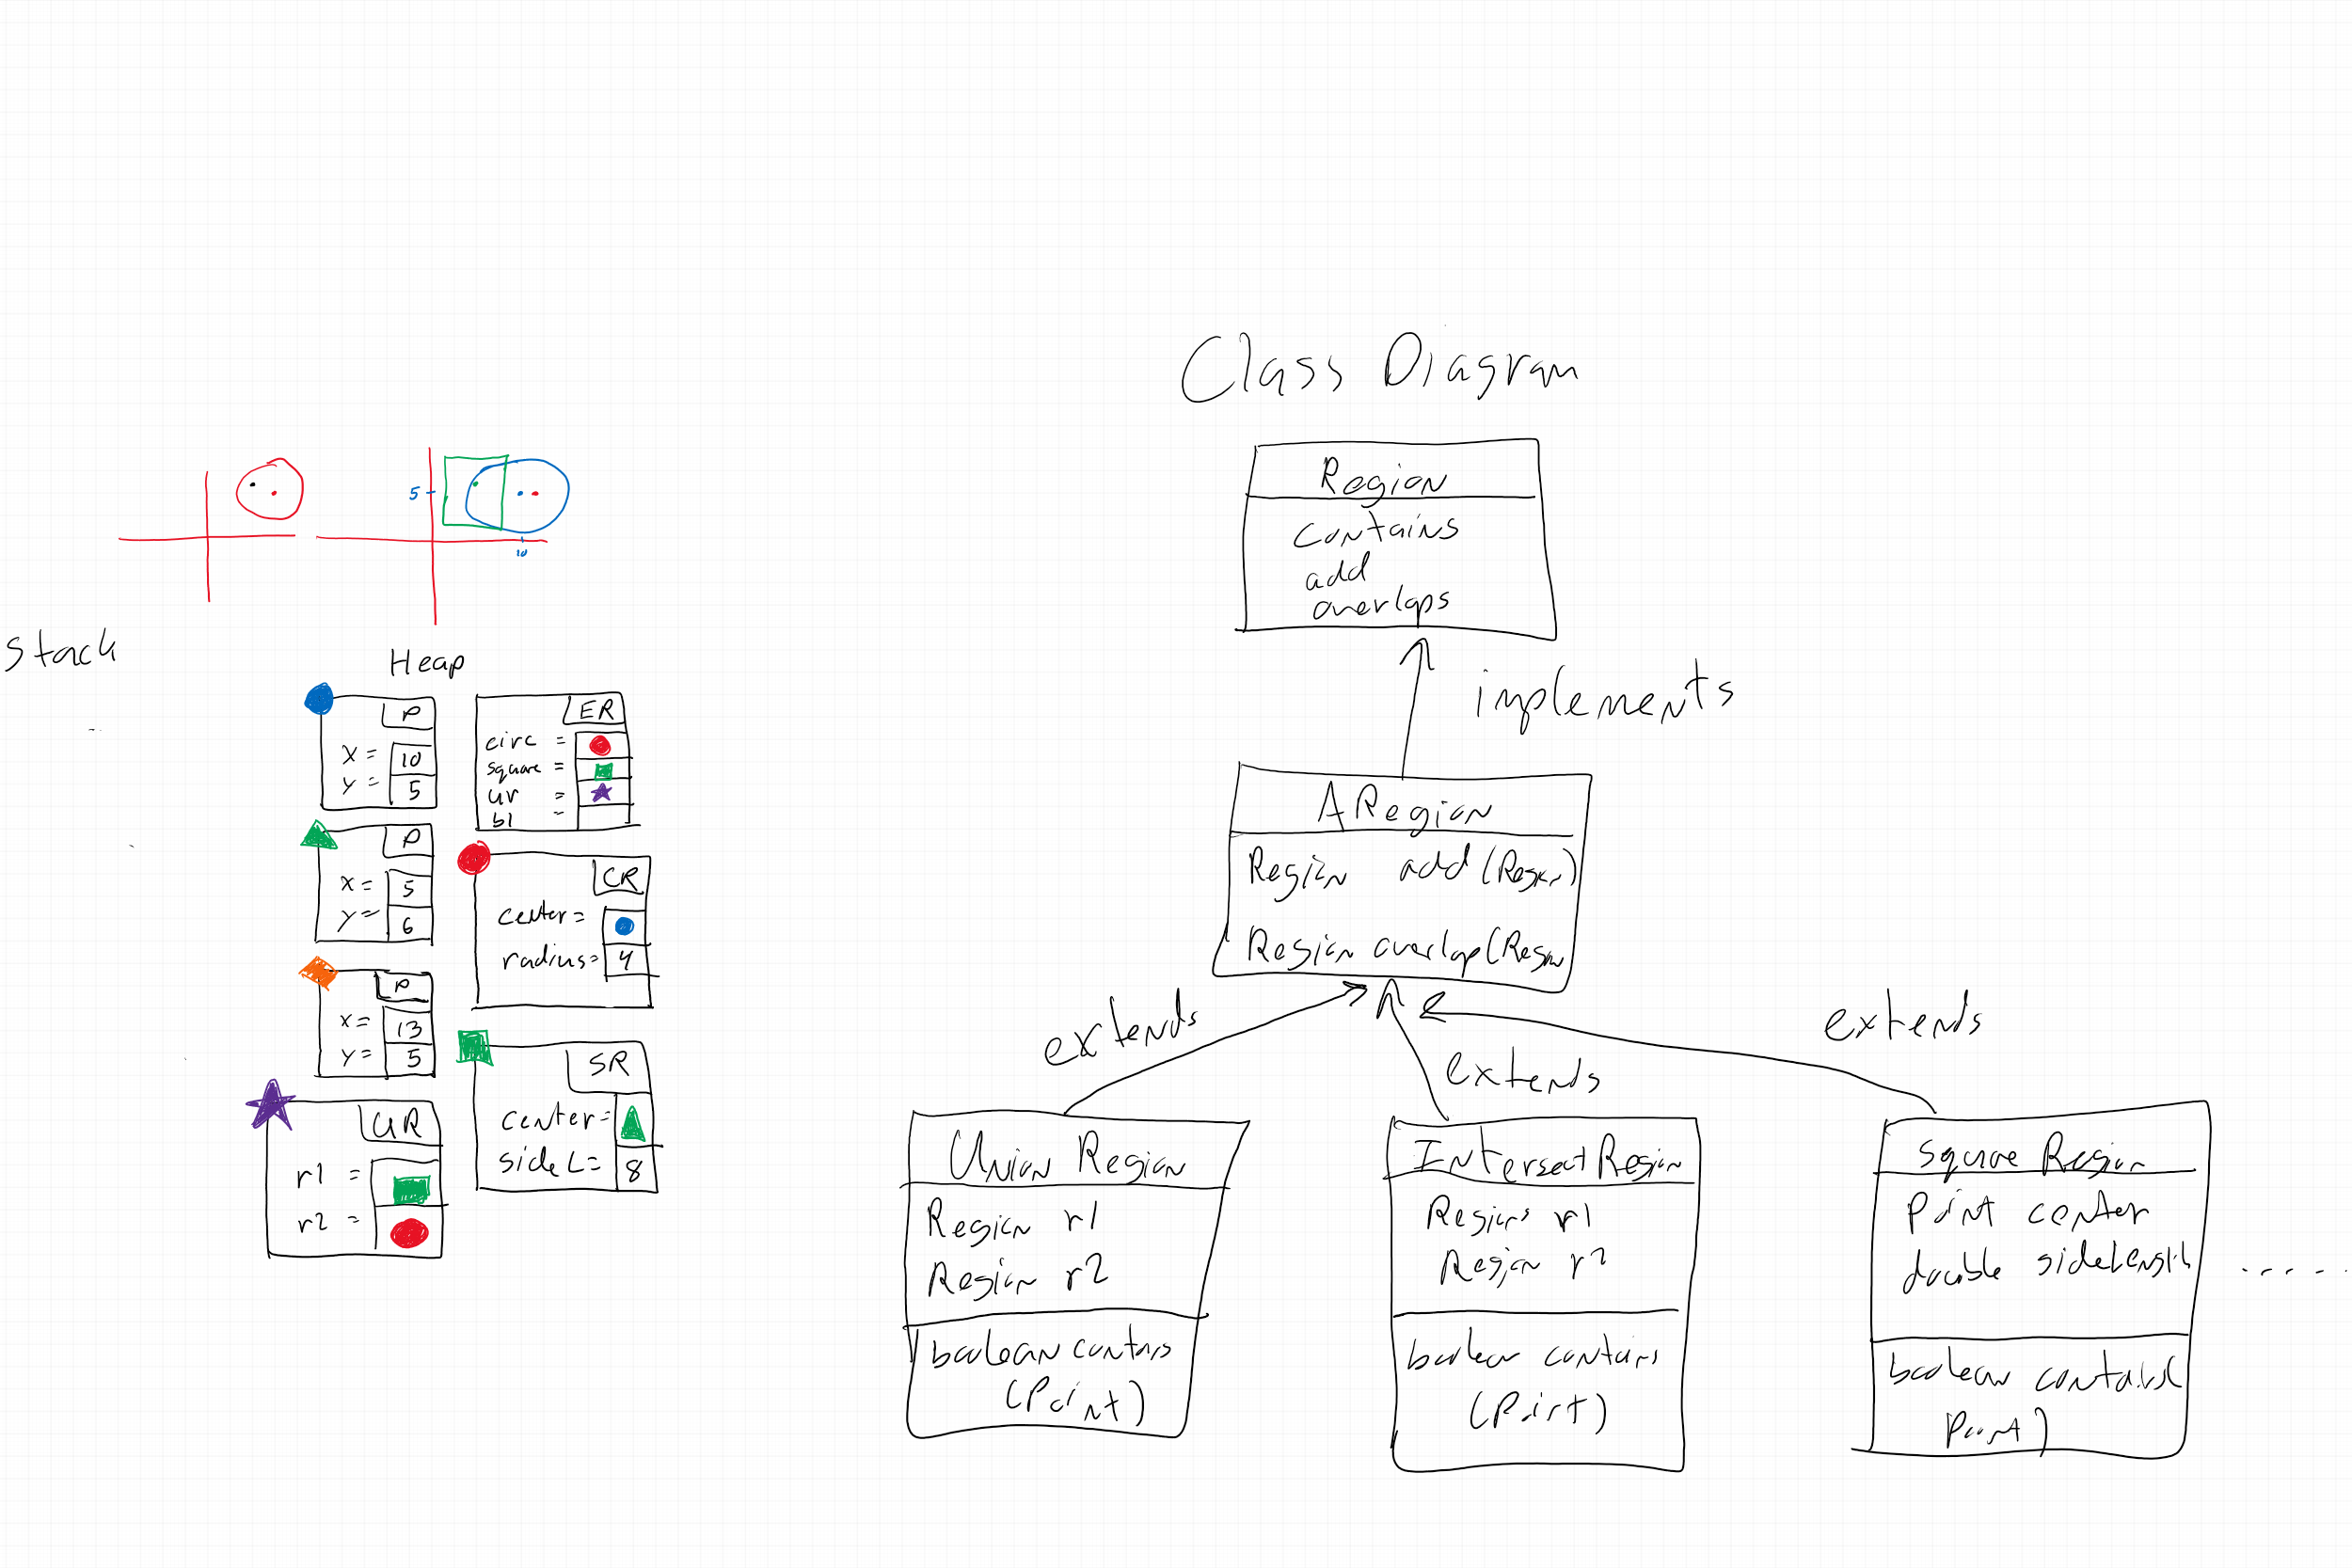 5
10
Stack
Heap
P
x = 10
y = 5
P
x = 5
y = 6
P
x = 13
y = 5
UR
r1 =
r2 =
ER
circ =
square =
ur =
b1 =
CR
center =
radius = 4
SR
center =
sideL = 8
Class Diagram
Region
contains
add
overlaps
implements
ARegion
Region add (Region)
Region overlap (Region
extends
extends
extends
Union Region
Region r1
Region r2
boolean contains
(Point)
Intersect Region
Region r1
Region r2
boolean contains
(Point)
Square Region
Point center
double sideLength
.....
boolean contains(
Point)